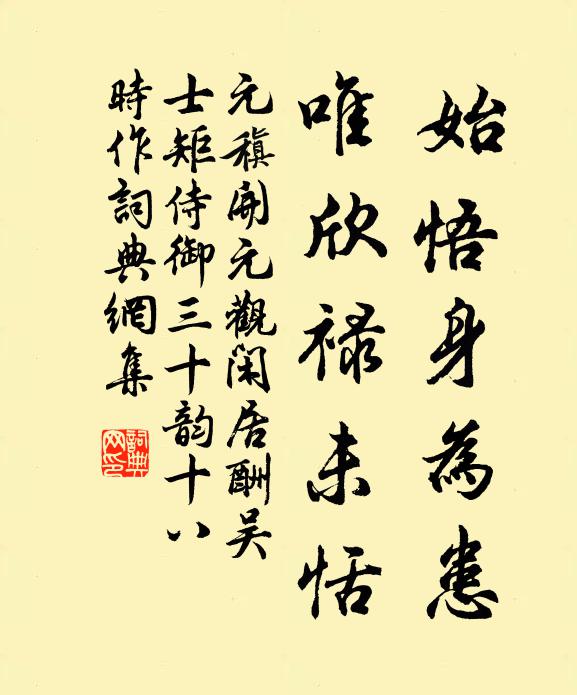 始悟身為患
唯欣祿未恬
元稹開元觀閑居酬吴
士矩侍御三十韵十八
時作詞典網集
詞典網印